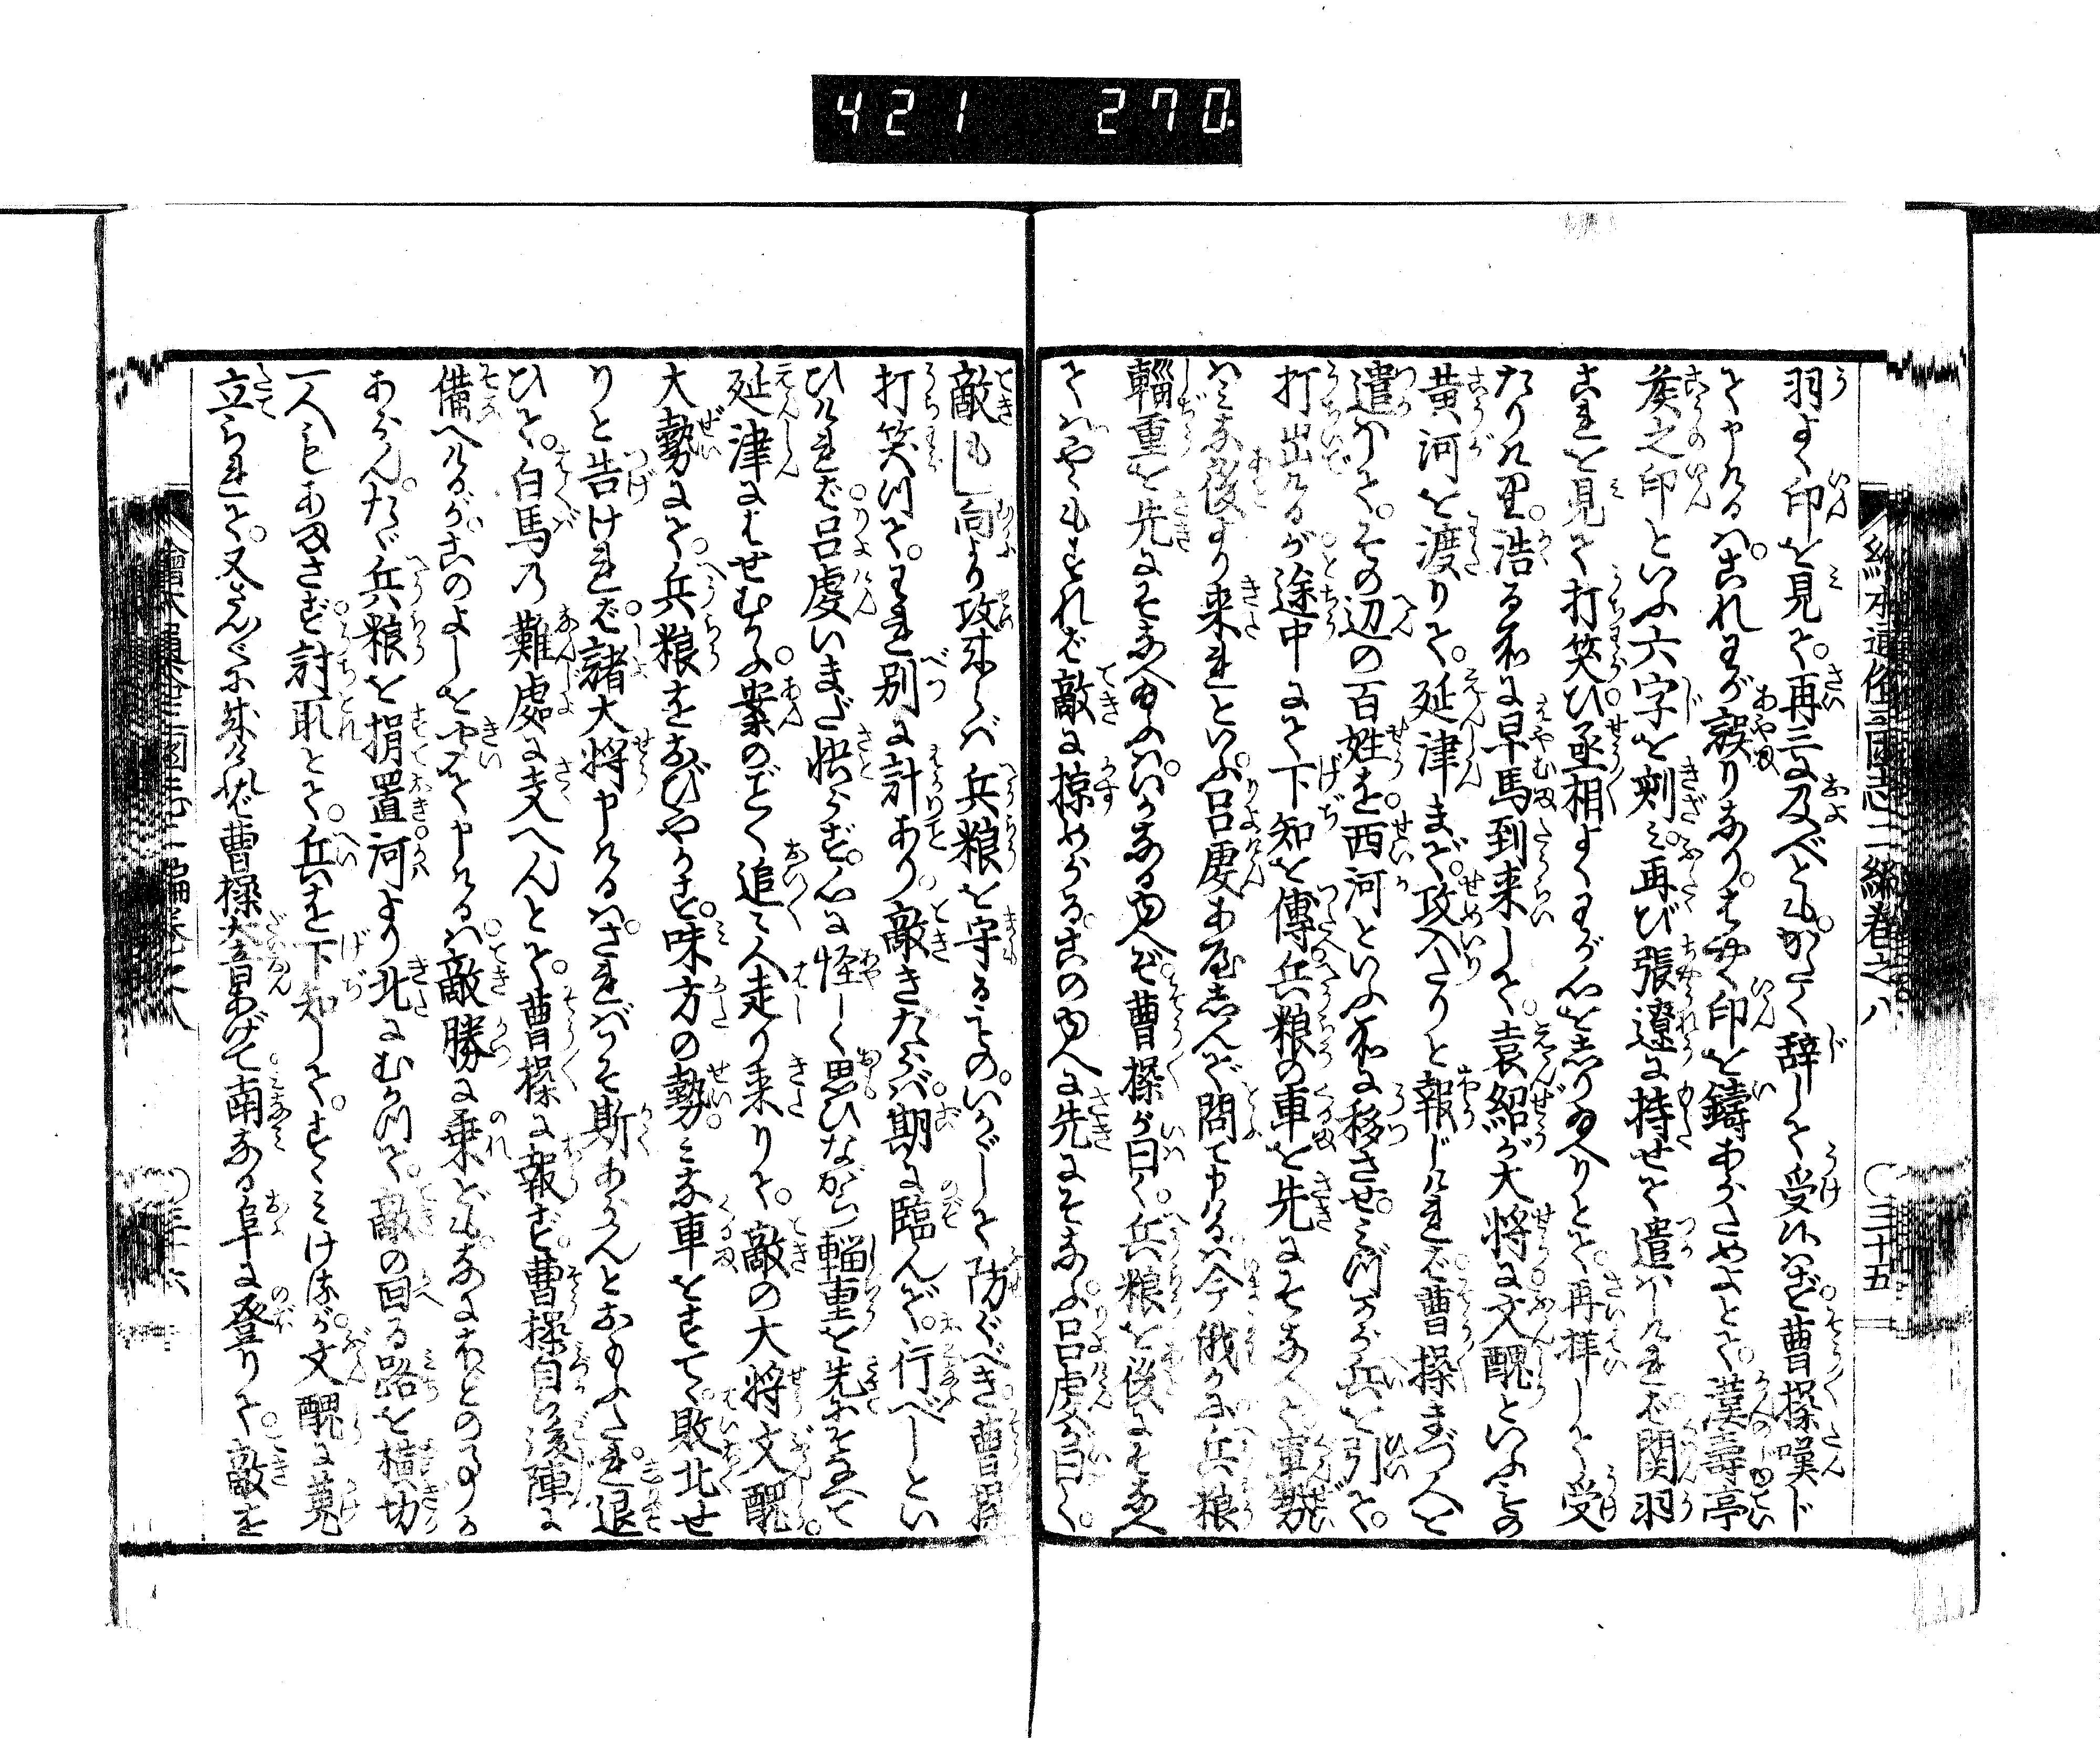 421 270
絵本通俗三國志二編巻之八 〇三十五
羽よく印を見て。再三に及べども。かたく辞して受けれバ。曹操嘆じ
て申けるハ。これわが誤りなり。はやく印を鋳あらためよとて。漢寿亭
矦之印といふ六字を刻み。再び張遼に持せて遣ハしけれバ。関羽
これを見て打笑ひ。丞相よくわが心を志り玉へりとて。再拝して受
たりけり。浩る所に早馬到来して。袁紹が大将に文醜といふもの
黄河を渡りて。延津まで。攻入たりと報じけれバ。曹操まづ人を
遣ハして。その辺の百姓を。西河といふ所に移させ。ミづから兵を引て。
打出けるが。途中にて下知を傳へ。兵粮の車を先にそなへ。軍勢
ハミな後より来れといふ。呂虔あやしんで問て申けるハ。今俄に兵粮
輜重を先にそなへ玉ふハ。いかなるゆへぞ。曹操が曰く。兵粮を後にそなへ
てハ。やゝもすれバ敵に掠めらる。このゆへに先にそなふ。呂虔が曰く。
敵もし向より攻来らバ。兵粮を守るもの。いかゞして防ぐべき。曹操
打笑つて。われ別に計あり。敵きたらバ。期に臨んで。行べしとい
ひけれバ。呂虔いまだ決らず。心に怪しく思ひながら。輜重を先にそなへて
延津にはせむかふ。案のごとく追々人走り来りて。敵の大将文醜。
大勢にて。兵粮をおびやかす。味方の勢。ミな車をすてゝ。敗北せ
りと告けれバ。諸大将申けるハ。されバこそ斯あらんとおもふたれ。退
ひて。白馬の難處に支へんとて。曹操に報ず。曹操自ら後陣に
備へけるが。このよしをきいて申けるハ。敵勝に乗ども。なにほどの事か
あらん。たゞ兵粮を捐置。河より北にむかつて。敵の回る路を横切
一人もあまさず討取とて。兵を下知して。すゝミけるが。文醜に蒐
立られて。又さん〴〵に来けれバ。曹操大音あげて。南なる阜に登りて。敵を
繪本通俗三國志二編巻之八 〇三十六